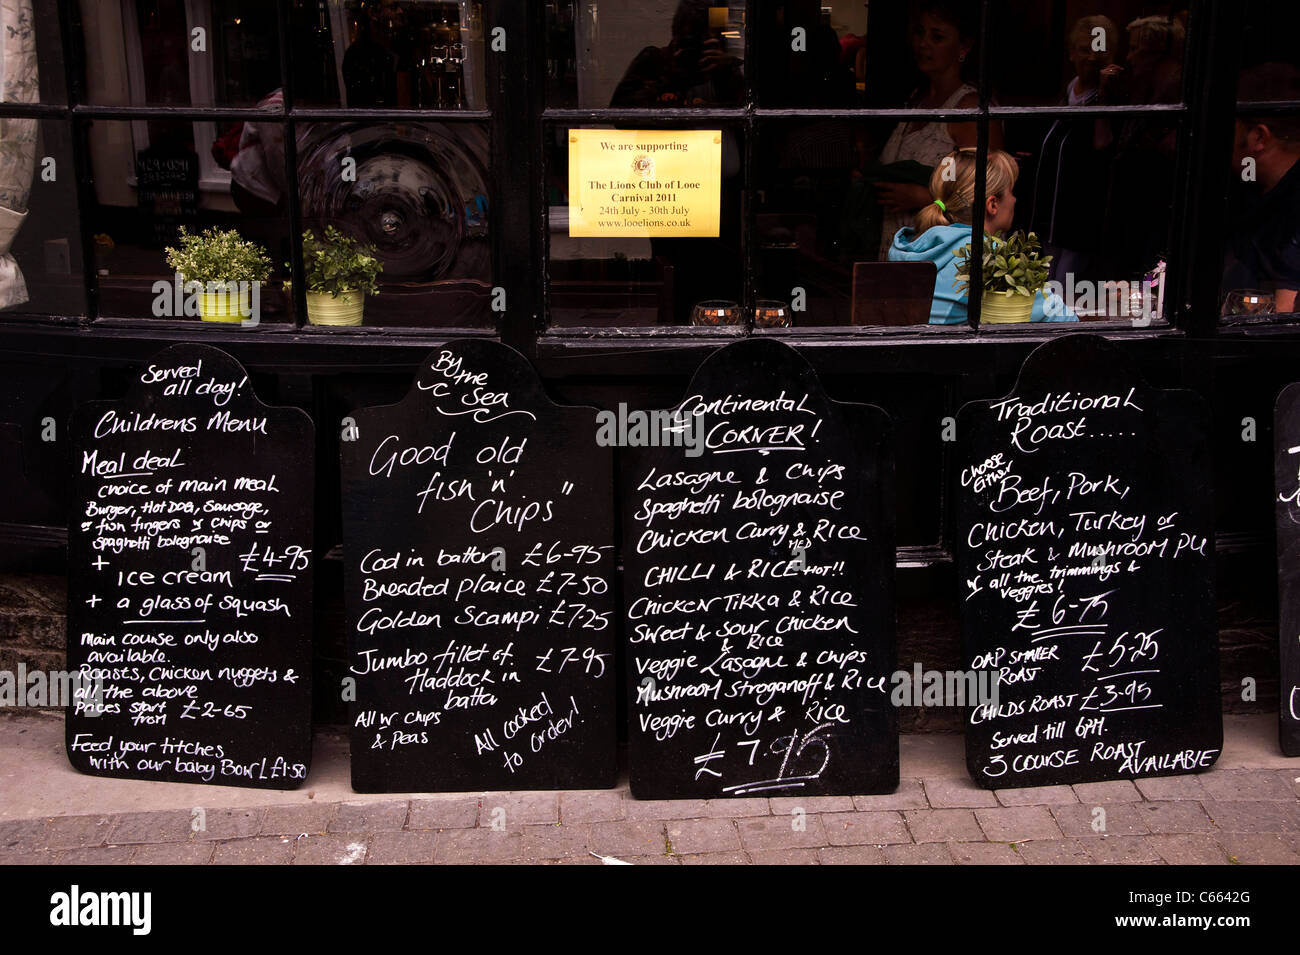 We are supporting
The Lions Club of Looe
Carnival 2011
24th July - 30th July
www.looelions.co.uk
Served
all day!
Childrens Menu
Meal deal
choice of main meal
Burger, Hot Dog, Sausage,
or fish fingers w chips or
Spaghetti bolognaise
+ £4-95
ice cream
+ a glass of squash
Main course only also
available.
Roasts, Chicken nuggets &
all the above
Prices start
from £2-65
Feed your titches
with our baby Bowl £1.50
By
the
Sea
"Good old
fish 'n'
Chips"
Cod in batter £6-95
Breaded plaice £7-50
Golden Scampi £7-25
Jumbo fillet of £7-95
Haddock in
batter
All w chips
& Peas
All cooked
to order!
Continental
CORNER!
Lasagne & Chips
Spaghetti bolognaise
Chicken Curry & Rice
MED
CHILLI & RICE HOT!!
Chicken Tikka & Rice
Sweet & Sour Chicken
& Rice
Veggie Lasagne & Chips
Mushroom Stroganoff & Rice
Veggie Curry & Rice
£7.95
Traditional
Roast.....
Choose
either
Beef, Pork,
Chicken, Turkey or
Steak & Mushroom Pie
w all the trimmings &
Veggies!
£6-75
OAP SMALLER
ROAST £5-25
CHILDS ROAST £3-95
Served till 6PM.
3 COURSE ROAST
AVAILABLE
alamy
C6642G
www.alamy.com